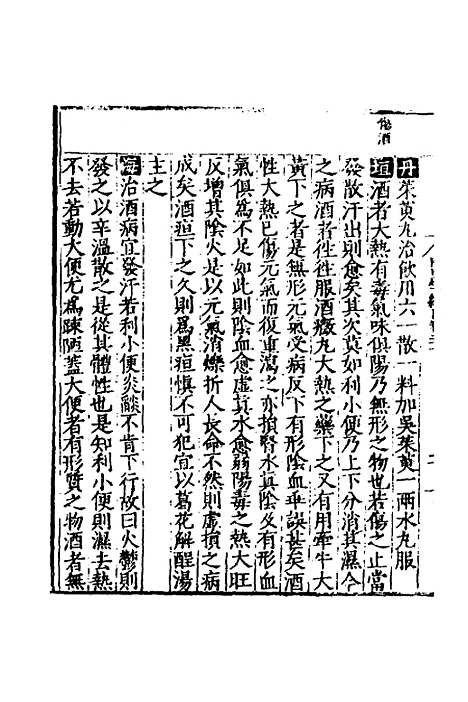 傷酒
丹茱萸丸治飲用六一散一料加吳茱萸一兩水丸服
垣酒者大熱有毒氣味俱陽乃無形之物也若傷之止當
發散汗出則愈矣其次莫如利小便乃上下分消其濕今
之病酒者往往服酒癥丸大熱之藥下之又有用牽牛大
黃下之者是無形元氣受病反下有形陰血乖誤甚矣酒
性大熱已傷元氣而復重瀉之亦損腎水真陰及有形血
氣俱為不足如此則陰血愈虛真水愈弱陽毒之熱大旺
反增其陰火是以元氣消爍折人長命不然則虛損之病
成矣酒疸下之久則為黑疸慎不可犯宜以葛花解酲湯
主之
海治酒病宜發汗若利小便炎燄不肯下行故曰火鬱則
發之以辛溫散之是從其體性也是知利小便則濕去熱
不去若動大便尤為疎陋蓋大便者有形質之物酒者無